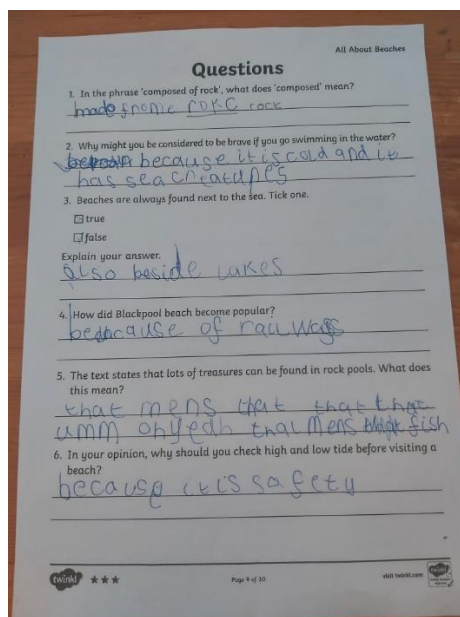 All About Beaches
Questions
1. In the phrase 'composed of rock', what does 'composed' mean?
made frome rock
2. Why might you be considered to be brave if you go swimming in the water?
because it is cold and it
has sea creatures
3. Beaches are always found next to the sea. Tick one.
true
false
Explain your answer.
also beside lakes
4. How did Blackpool beach become popular?
because of railways
5. The text states that lots of treasures can be found in rock pools. What does
this mean?
that mens that that that
umm ohyedh that mens fish
6. In your opinion, why should you check high and low tide before visiting a
beach?
because it is safety
twinkl
Page 9 of 10
visit twinkl.com
twinkl